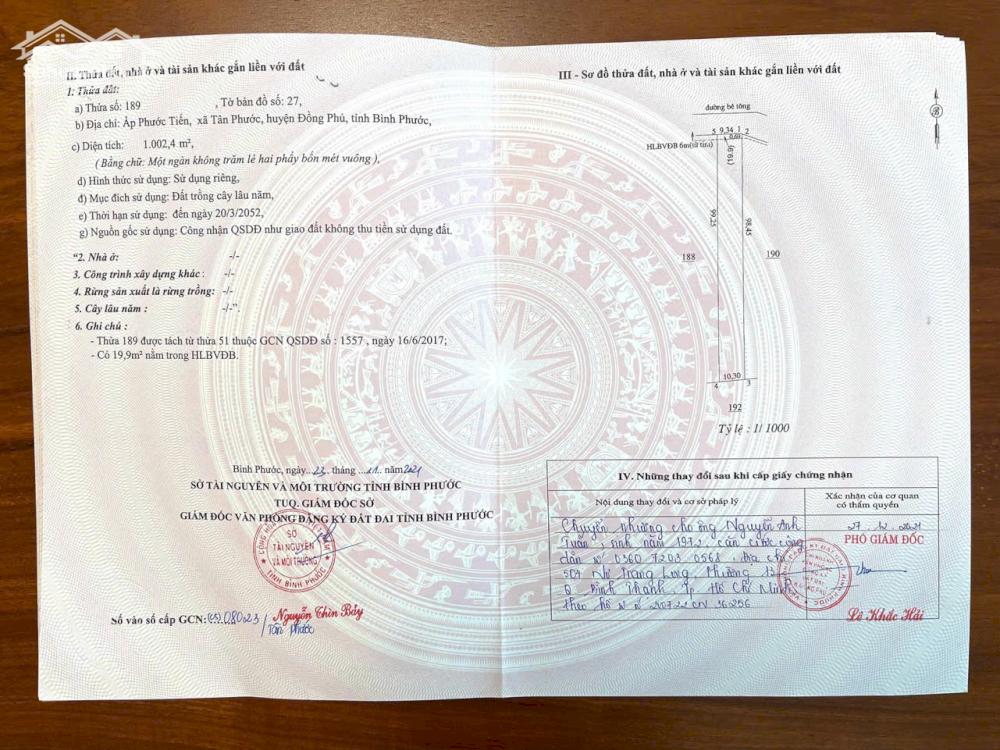 II. Thửa đất, nhà ở và tài sản khác gắn liền với đất
1. Thửa đất:
a) Thửa số: 189 , Tờ bản đồ số: 27,
b) Địa chỉ: Ấp Phước Tiến, xã Tân Phước, huyện Đồng Phú, tỉnh Bình Phước,
c) Diện tích: 1.002,4 m²,
( Bằng chữ: Một ngàn không trăm lẻ hai phẩy bốn mét vuông ),
d) Hình thức sử dụng: Sử dụng riêng,
đ) Mục đích sử dụng: Đất trồng cây lâu năm,
e) Thời hạn sử dụng: đến ngày 20/3/2052,
g) Nguồn gốc sử dụng: Công nhận QSDĐ như giao đất không thu tiền sử dụng đất.
“2. Nhà ở: -/-
3. Công trình xây dựng khác : -/-
4. Rừng sản xuất là rừng trồng: -/-
5. Cây lâu năm : -/-”.
6. Ghi chú :
- Thửa 189 được tách từ thửa 51 thuộc GCN QSDĐ số : 1557 , ngày 16/6/2017;
- Có 19,9m² nằm trong HLBVĐB.
Bình Phước, ngày 23 tháng 11 năm 2021
SỞ TÀI NGUYÊN VÀ MÔI TRƯỜNG TỈNH BÌNH PHƯỚC
TUQ. GIÁM ĐỐC SỞ
GIÁM ĐỐC VĂN PHÒNG ĐĂNG KÝ ĐẤT ĐAI TỈNH BÌNH PHƯỚC
SỞ
TÀI NGUYÊN
VÀ MÔI TRƯỜNG
TỈNH BÌNH PHƯỚC
Nguyễn Thìn Bảy
Số vào sổ cấp GCN: (CS) 08023 /
Tân Phước
III - Sơ đồ thửa đất, nhà ở và tài sản khác gắn liền với đất
đường bê tông
5 9,34 1 2
0,69
HLBVĐB 6m(từ tim)
(19,9)
99,25
98,45
188
190
10,30
4 3
192
Tỷ lệ : 1/ 1000
IV. Những thay đổi sau khi cấp giấy chứng nhận
Nội dung thay đổi và cơ sở pháp lý
Xác nhận của cơ quan
có thẩm quyền
Chuyển nhượng cho ông Nguyễn Anh
Tuấn, sinh năm 1972 căn cước công
dân số 0360 7203 0568 địa chỉ
507 Nơ Trang Long, Phường 13
Q Bình Thạnh, Tp Hồ Chí Minh
theo hồ sơ số
27 . 12 . 2021
PHÓ GIÁM ĐỐC
Lê Khắc Hải